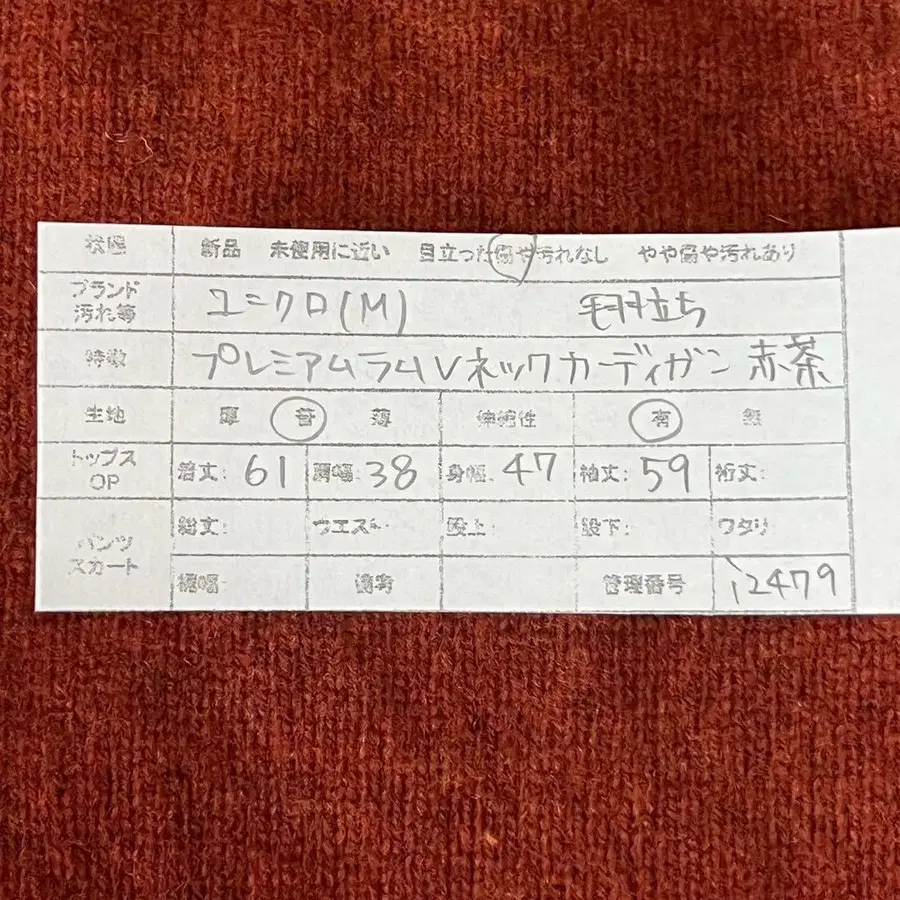 状態 新品 未使用に近い 目立った傷や汚れなし やや傷や汚れあり
ブランド
汚れ等 ユニクロ(M) 毛羽立ち
特徴 プレミアムラムVネックカーディガン 赤茶
生地 厚 普 薄 伸縮性 有 無
トップス
OP 着丈: 61 肩幅: 38 身幅: 47 袖丈: 59 裄丈:
パンツ
スカート 総丈: ウエスト: 股上: 股下: ワタリ:
裾幅: 備考 管理番号 i2479